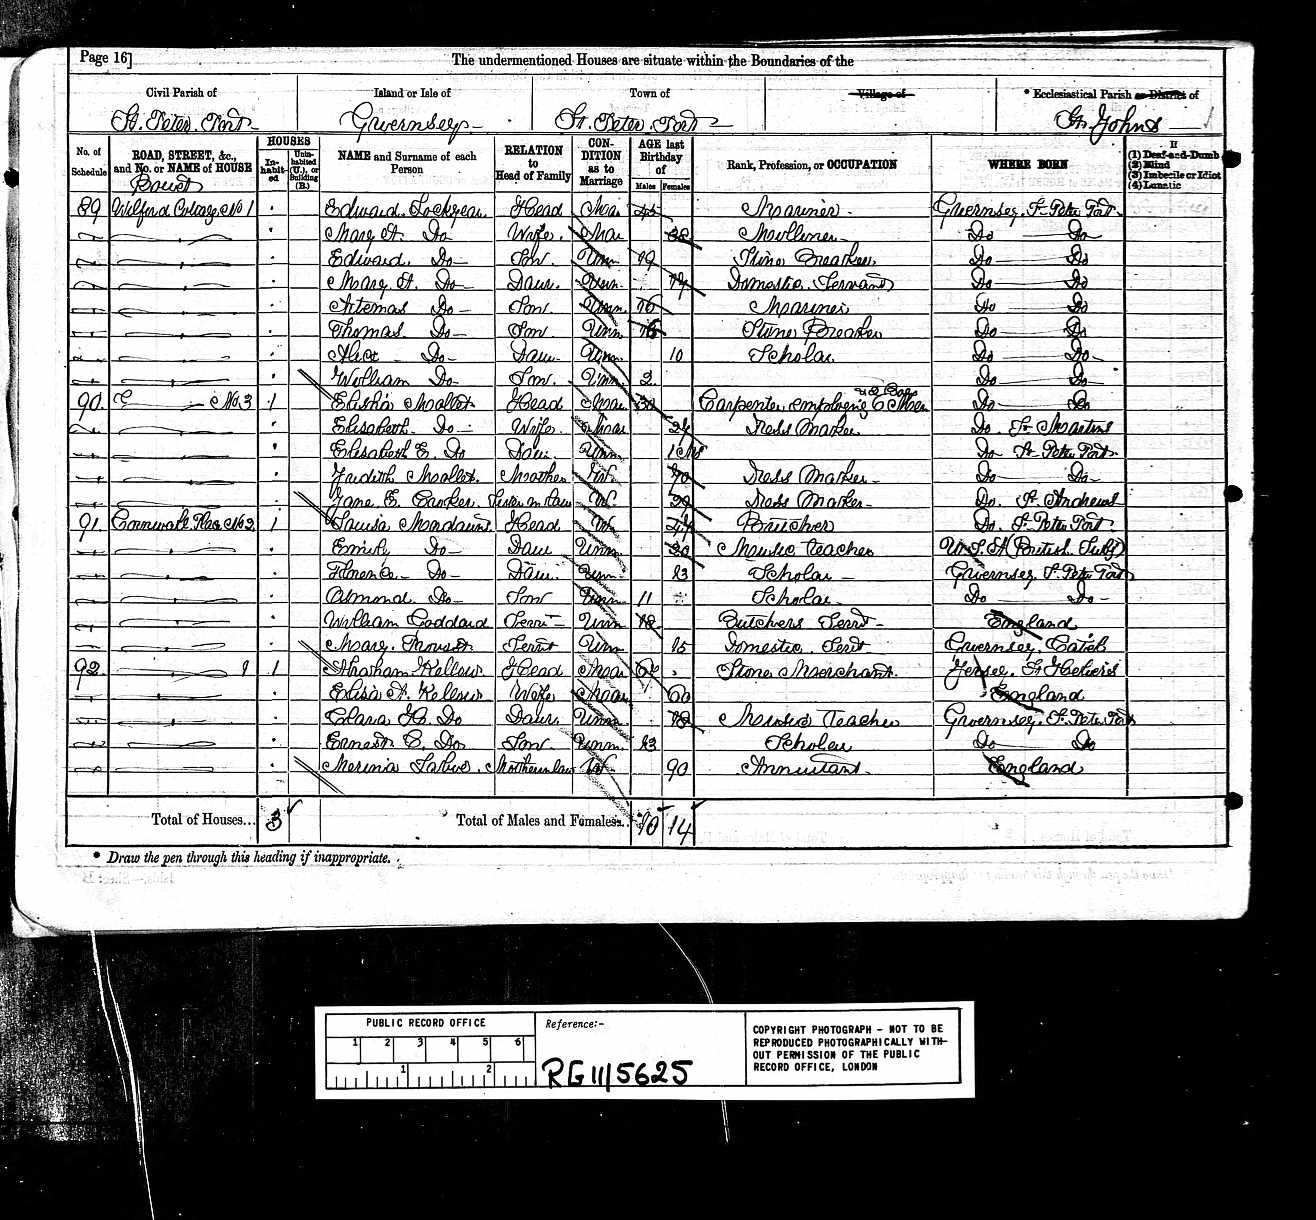 Page 16]
The undermentioned Houses are situate within the Boundaries of the
Civil Parish of
Island or Isle of
Town of
Village of
* Ecclesiastical Parish or District of
St. Peter Port
Guernsey
St. Peter Port
St. Johns
No. of Schedule
ROAD, STREET, &c., and No. or NAME of HOUSE
HOUSES
In-habit-ed
Unin-habited (U.), or Building (B.)
NAME and Surname of each Person
RELATION to Head of Family
CON-DITION as to Marriage
AGE last Birthday of
Males
Females
Rank, Profession, or OCCUPATION
WHERE BORN
If
(1) Deaf-and-Dumb
(2) Blind
(3) Imbecile or Idiot
(4) Lunatic
89 No 1 Edward Head Mar 45 Mariner Guernsey St Peter Port
Mary A. Do Wife Mar 38 Milliner Do Do
Edward Do Son Unm 19 Stone Breaker Do Do
Mary A. Do Daur Unm Domestic Servant Do Do
Artemas Do Son Unm 16 Mariner Do Do
Thomas Do Son Unm Stone Breaker Do Do
Alice Do Daur Unm 10 Scholar Do Do
William Do Son Unm 2 Do Do
90 No 3 1 Elisha Mallet Head Mar Carpenter employing 6 Men & 2 Boys Do Do
Elisabeth Do Wife Mar Dress Maker Do St Martins
Elisabeth E. Do Daur Unm Do St Peter Port
Judith Mallet Mother W 70 Dress Maker Do Do
Jane E. Sister in Law 29 Dress Maker Do St Andrews
91 Cornwall Place No 2 1 Louisa Head W Butcher Do St Peter Port
Emily Do Daur Unm 20 Music Teacher U.S.A (British Subj)
Florence Do Daur Unm 13 Scholar Guernsey St Peter Port
Almond Do Son Unm 11 Scholar Do Do
William Goddard Servt Unm 18 Butchers Servt England
Mary Servt Unm 15 Domestic Servt Guernsey Catel
92 1 1 Abraham Head Mar Stone Merchant Jersey St Heliers
Eliza A. Wife Mar 60 England
Clara H. Do Daur Unm 18 Music Teacher Guernsey St Peter Port
Ernest C. Do Son Unm 13 Scholar Do Do
Mother in law W 90 Annuitant England
Total of Houses... 3
Total of Males and Females... 10 14
* Draw the pen through this heading if inappropriate.
PUBLIC RECORD OFFICE
1 2 3 4 5 6
1 2
Reference:-
RG 11/5625
COPYRIGHT PHOTOGRAPH - NOT TO BE
REPRODUCED PHOTOGRAPHICALLY WITH-
OUT PERMISSION OF THE PUBLIC
RECORD OFFICE, LONDON